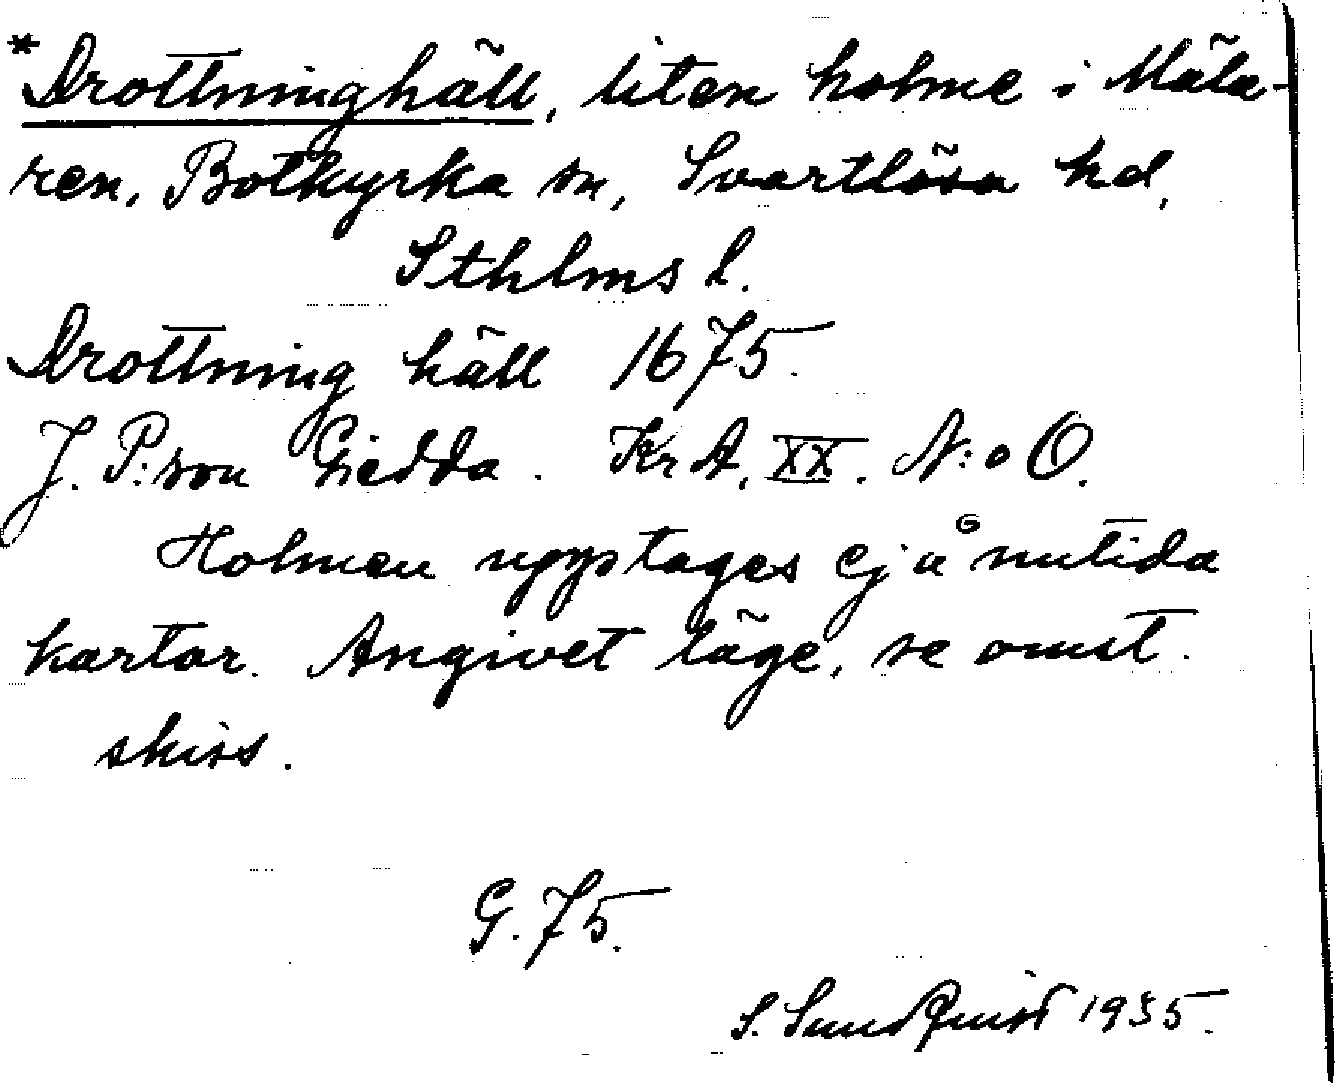 *Drottninghäll, liten holme i Mäla-
ren, Botkyrka sn, Svartlösa hd,
Sthlms l.
Drottning häll 1675.
J. P:son Giedda. KrA. XX. N:o O.
Holmen upptages ej å nutida
kartor. Angivet läge, se omst.
skiss.
G. 75.
S. Sundquist 1935.